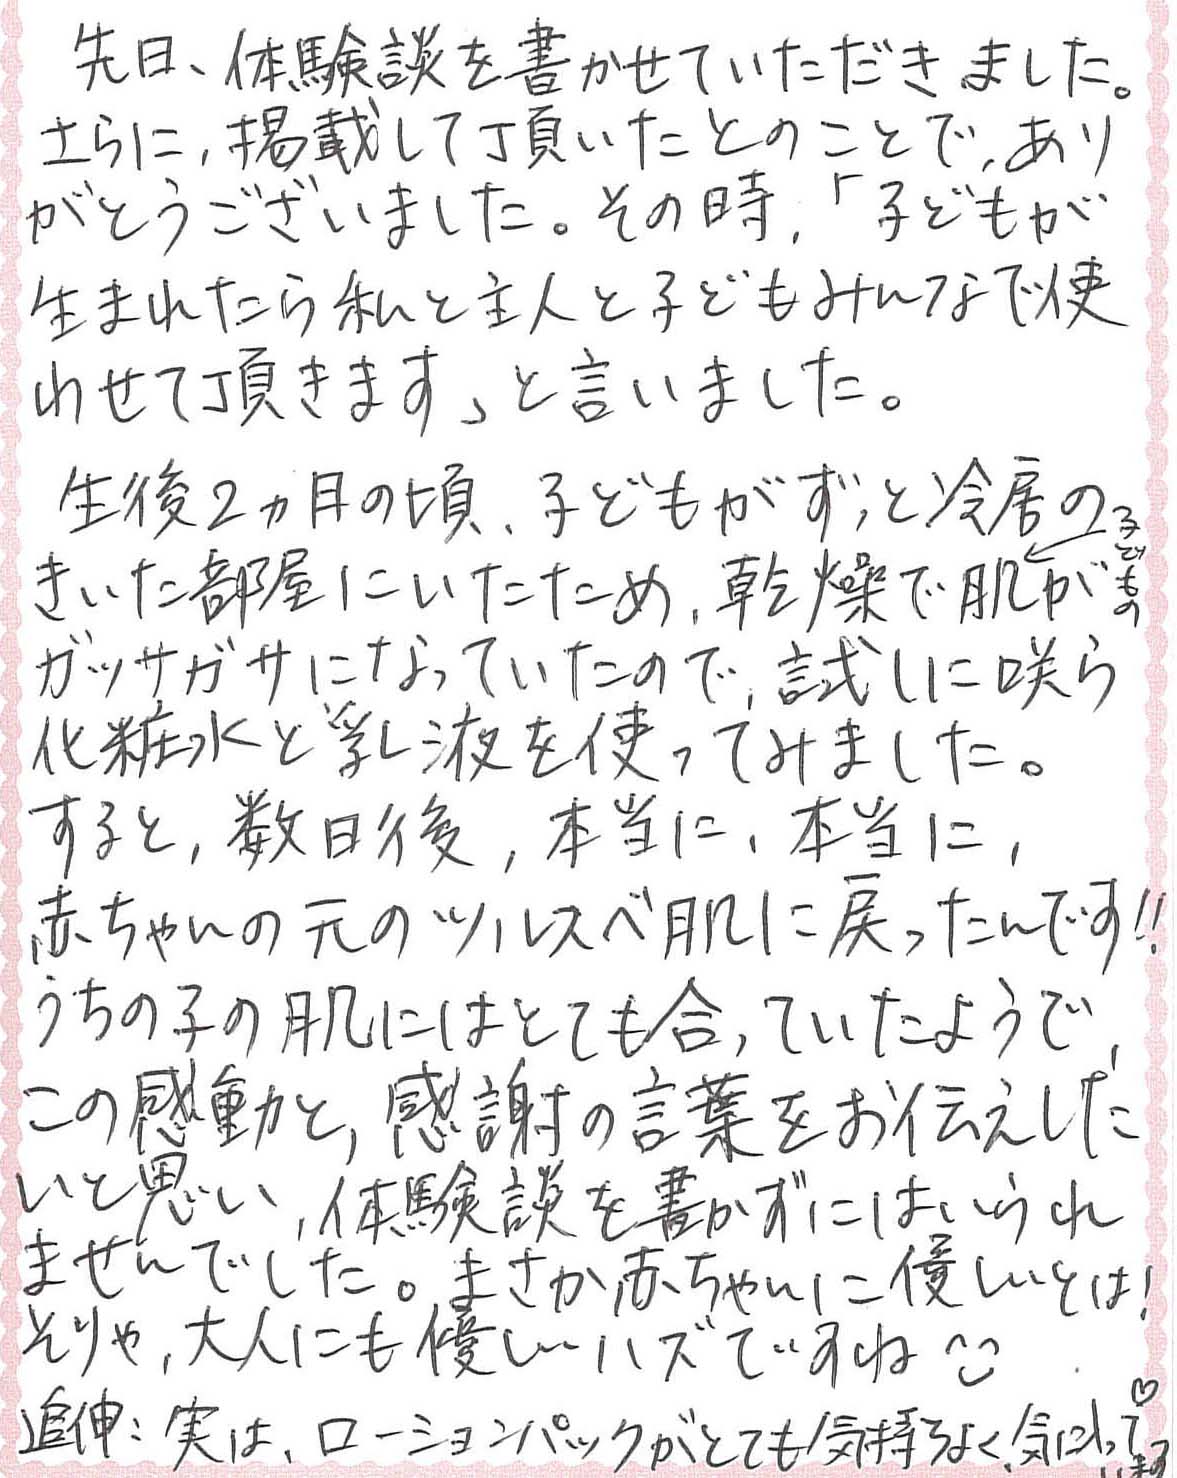 先日、体験談を書かせていただきました。
さらに、掲載して頂いたとのことで、あり
がとうございました。その時、「子どもが
生まれたら私と主人と子どもみんなで使
わせて頂きます」と言いました。
生後2ヵ月の頃、子どもがずっと冷房の
きいた部屋にいたため、乾燥で子どもの肌が
ガッサガサになっていたので、試しに咲ら
化粧水と乳液を使ってみました。
すると、数日後、本当に、本当に、
赤ちゃんの元のツルスベ肌に戻ったんです!!
うちの子の肌にはとても合っていたようで、
この感動と、感謝の言葉をお伝えした
いと思い、体験談を書かずにはいられ
ませんでした。まさか赤ちゃんに優しいとは!
そりゃ、大人にも優しいハズですね
追伸:実は、ローションパックがとても気持ちよく、気に入ってます♡